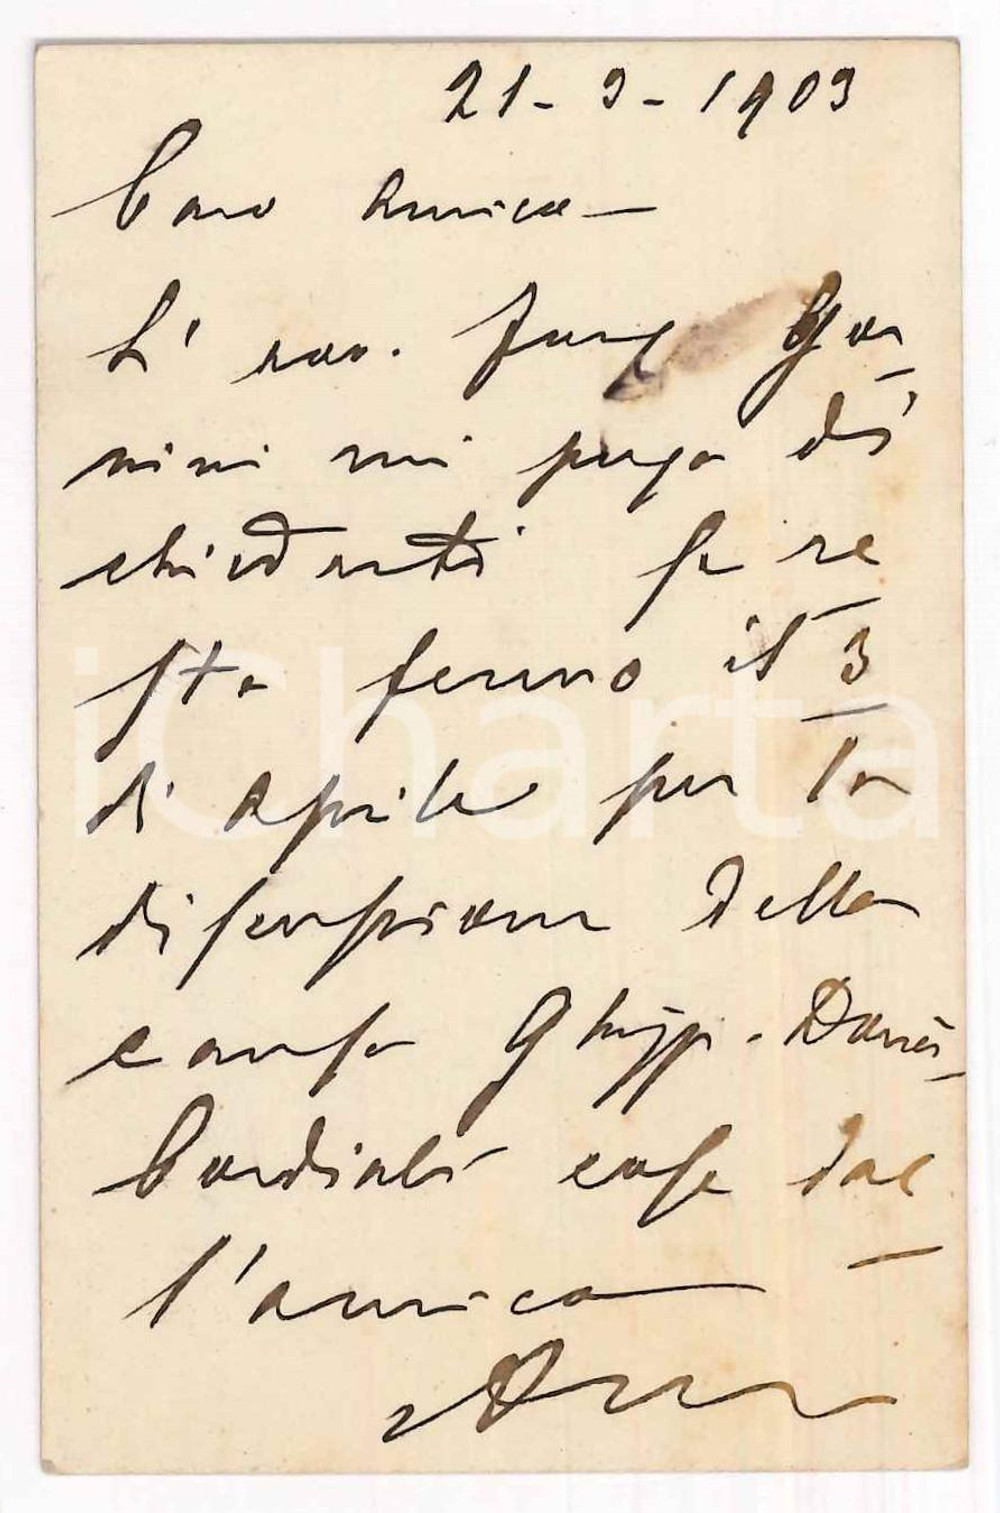 21-3-1903
Caro Amico –
L'avv. Jung Gian
nini mi prega di
chiederti se re
sta fermo il 3
di Aprile per la
discussione della
causa Ghypi-Davis
Cordiali cose dal
l'amico
iCharta